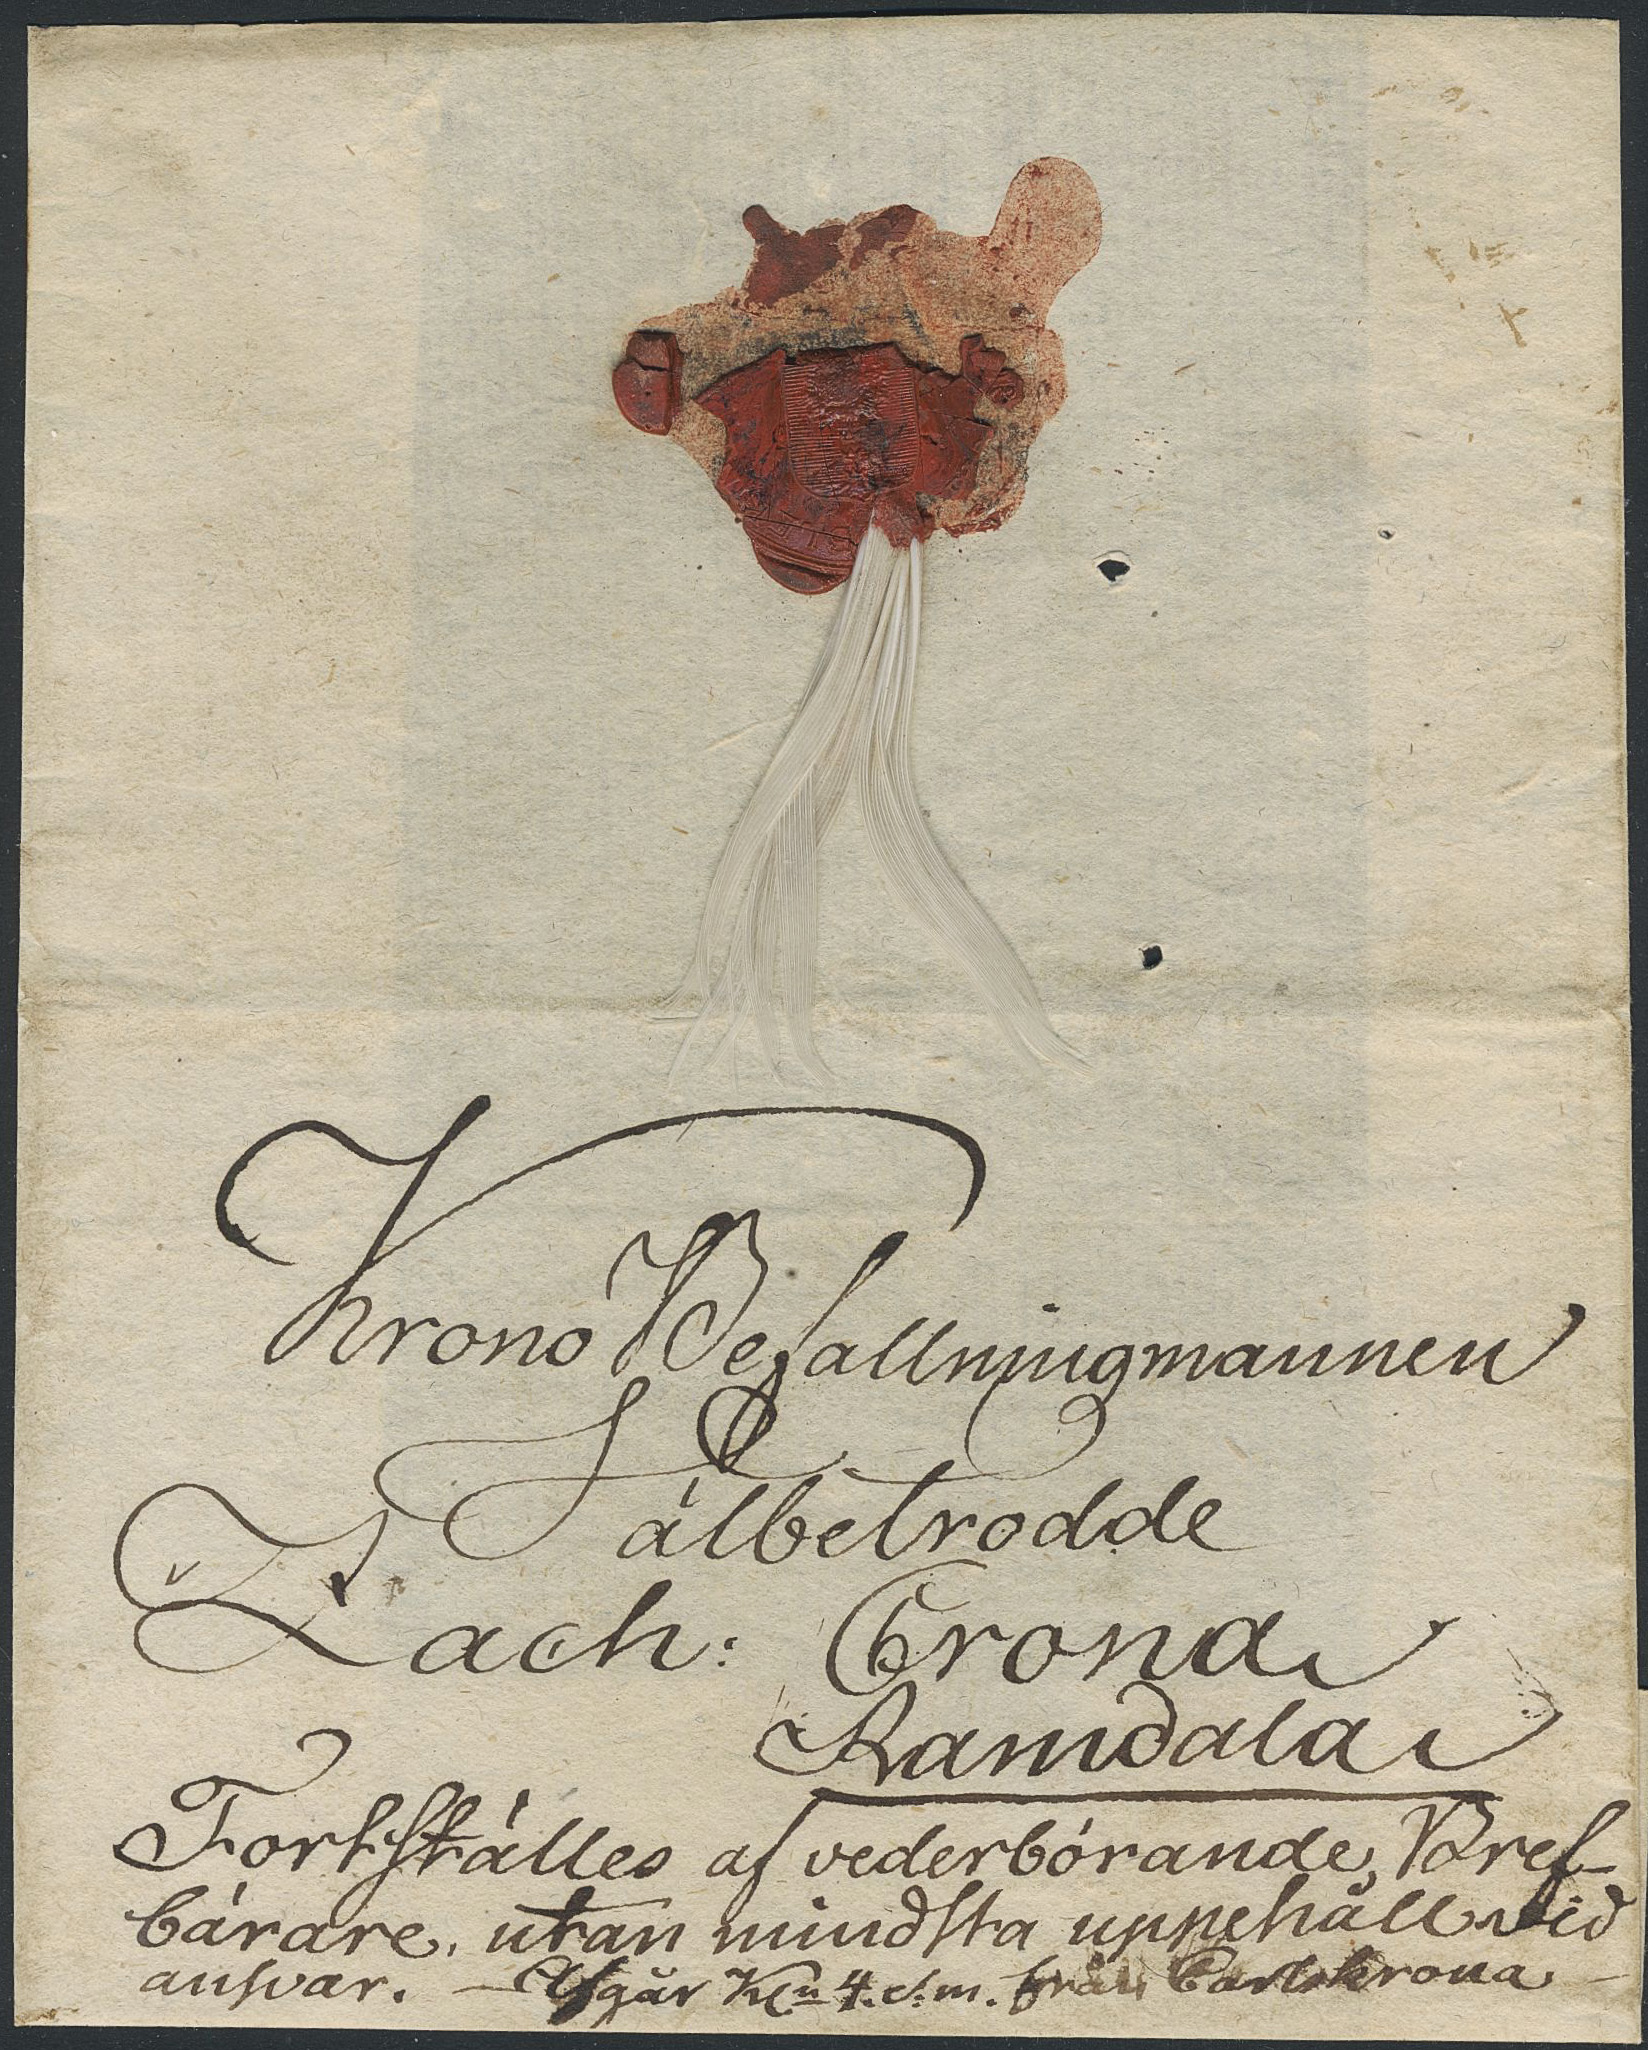 Krono Befallningmannen
Wälbetrodde
Zach: Crona
Ramdala
Fortställes af vederbörande, Bref-
bärare, utan mindsta uppehåll vid
answar. – Afgår Kl:n 4. e.m. från Carlskrona –